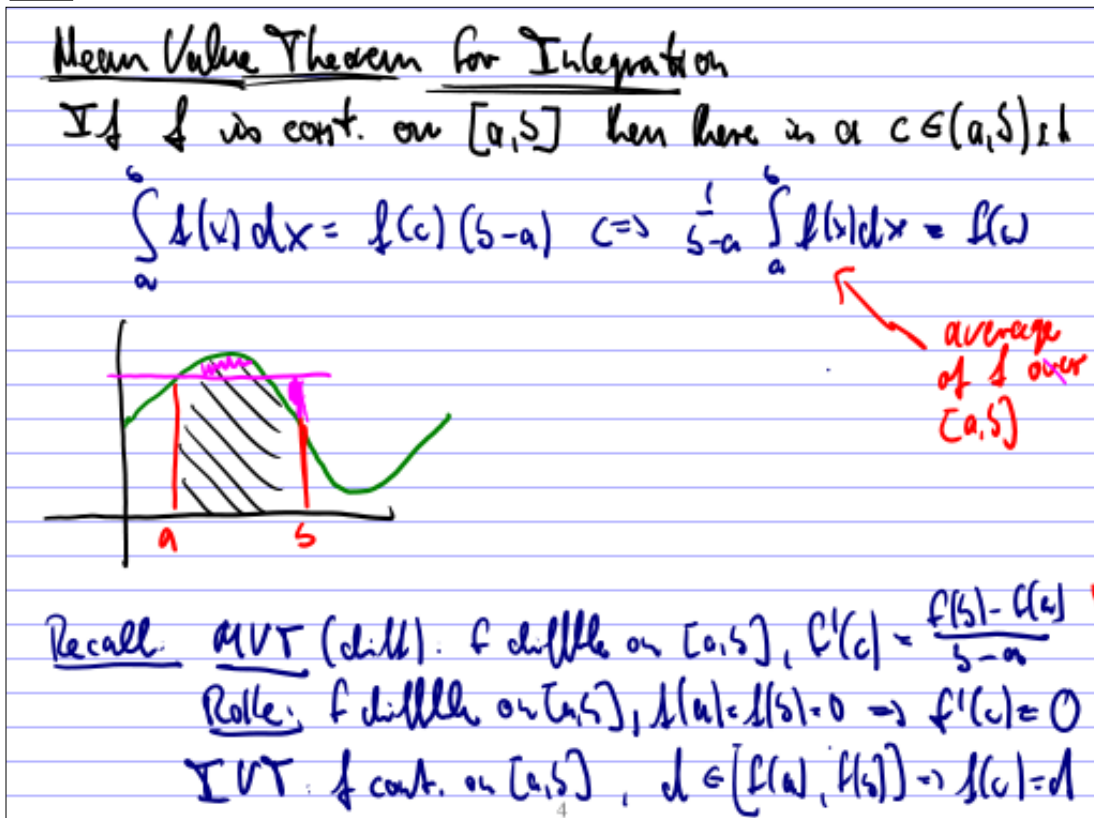 Mean Value Theorem for Integration
If f is cont. on [a,b] then there is a c ∈ (a,b) s.t.
∫_a^b f(x) dx = f(c) (b-a) <=> 1/(b-a) ∫_a^b f(x) dx = f(c)
average
of f over
[a,b]
a b
Recall: MVT (diff): f diffble on [a,b], f'(c) = (f(b) - f(a))/(b-a)
Rolle: f diffble on [a,b], f(a)=f(b)=0 => f'(c)=0
IVT: f cont. on [a,b], d ∈ [f(a), f(b)] => f(c)=d
4